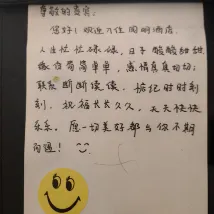 尊敬的贵宾:
您好!欢迎入住圆明酒店。
人生忙忙碌碌,日子酸酸甜甜,
做人简简单单,感情真真切切;
联系断断续续,惦记时时刻
刻,祝福长长久久,天天快快
乐乐,愿一切美好都与你不期
而遇!